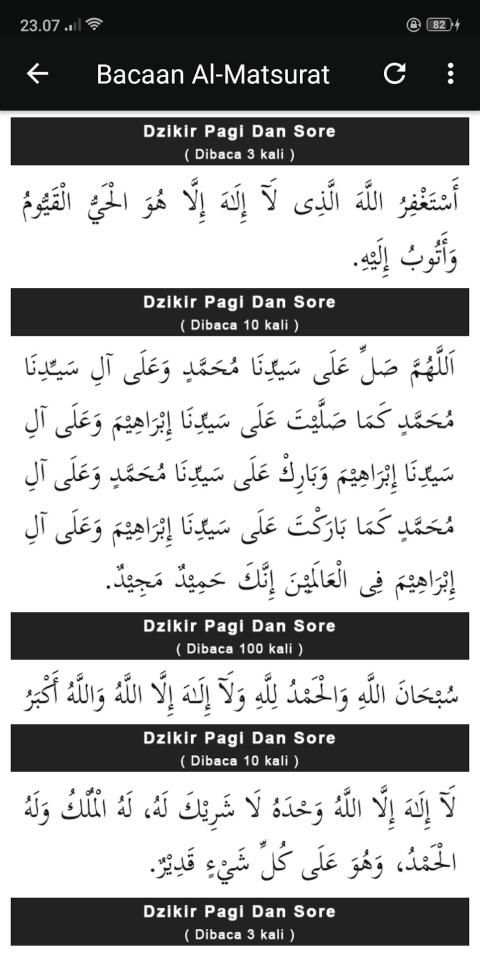 23.07
82
Bacaan Al-Matsurat
Dzikir Pagi Dan Sore
( Dibaca 3 kali )
أَسْتَغْفِرُ اللَّهَ الَّذِى لَآ إِلَـٰهَ إِلَّا هُوَ الْحَيُّ الْقَيُّومُ
وَأَتُوبُ إِلَيْهِ.
Dzikir Pagi Dan Sore
( Dibaca 10 kali )
اَللَّهُمَّ صَلِّ عَلَى سَيِّدِنَا مُحَمَّدٍ وَعَلَى آلِ سَيِّدِنَا
مُحَمَّدٍ كَمَا صَلَّيْتَ عَلَى سَيِّدِنَا إِبْرَاهِيْمَ وَعَلَى آلِ
سَيِّدِنَا إِبْرَاهِيْمَ وَبَارِكْ عَلَى سَيِّدِنَا مُحَمَّدٍ وَعَلَى آلِ
مُحَمَّدٍ كَمَا بَارَكْتَ عَلَى سَيِّدِنَا إِبْرَاهِيْمَ وَعَلَى آلِ
إِبْرَاهِيْمَ فِى الْعَالَمِيْنَ إِنَّكَ حَمِيْدٌ مَجِيْدٌ.
Dzikir Pagi Dan Sore
( Dibaca 100 kali )
سُبْحَانَ اللَّهِ وَالْحَمْدُ لِلَّهِ وَلَآ إِلَـٰهَ إِلَّا اللَّهُ وَاللَّهُ أَكْبَرُ
Dzikir Pagi Dan Sore
( Dibaca 10 kali )
لَآ إِلَـٰهَ إِلَّا اللَّهُ وَحْدَهُ لَا شَرِيْكَ لَهُ، لَهُ الْمُلْكُ وَلَهُ
الْحَمْدُ، وَهُوَ عَلَى كُلِّ شَيْءٍ قَدِيْرٌ.
Dzikir Pagi Dan Sore
( Dibaca 3 kali )